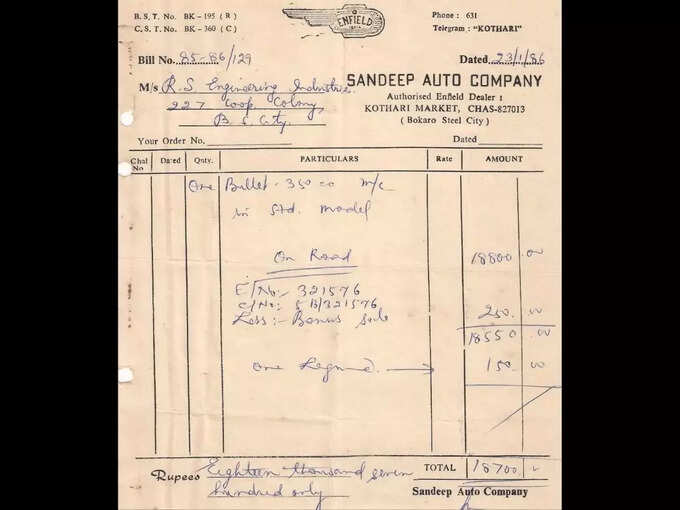 B. S. T. No. BK - 195 ( R )
C. S. T. No. BK - 360 ( C )
ENFIELD
Phone : 631
Telegram : "KOTHARI"
Bill No. 85-86/129
Dated 23/1/86
M/s R.S. Engineering Industries.
227 Coop. Colony,
B. S. City.
SANDEEP AUTO COMPANY
Authorised Enfield Dealer :
KOTHARI MARKET, CHAS-827013
( Bokaro Steel City )
Your Order No.
Dated
Chal No Dated Qnty. PARTICULARS Rate AMOUNT
One Bullet - 350 cc m/c
in Std. model
On Road 18800 .00
E/No:- 321576
C/No:- 5 B/321576
Less :- Bonus sale 250 .00
18550 .00
One Legguard. → 150 .00
TOTAL 18700
Rupees Eighteen thousand seven
hundred only
Sandeep Auto Company